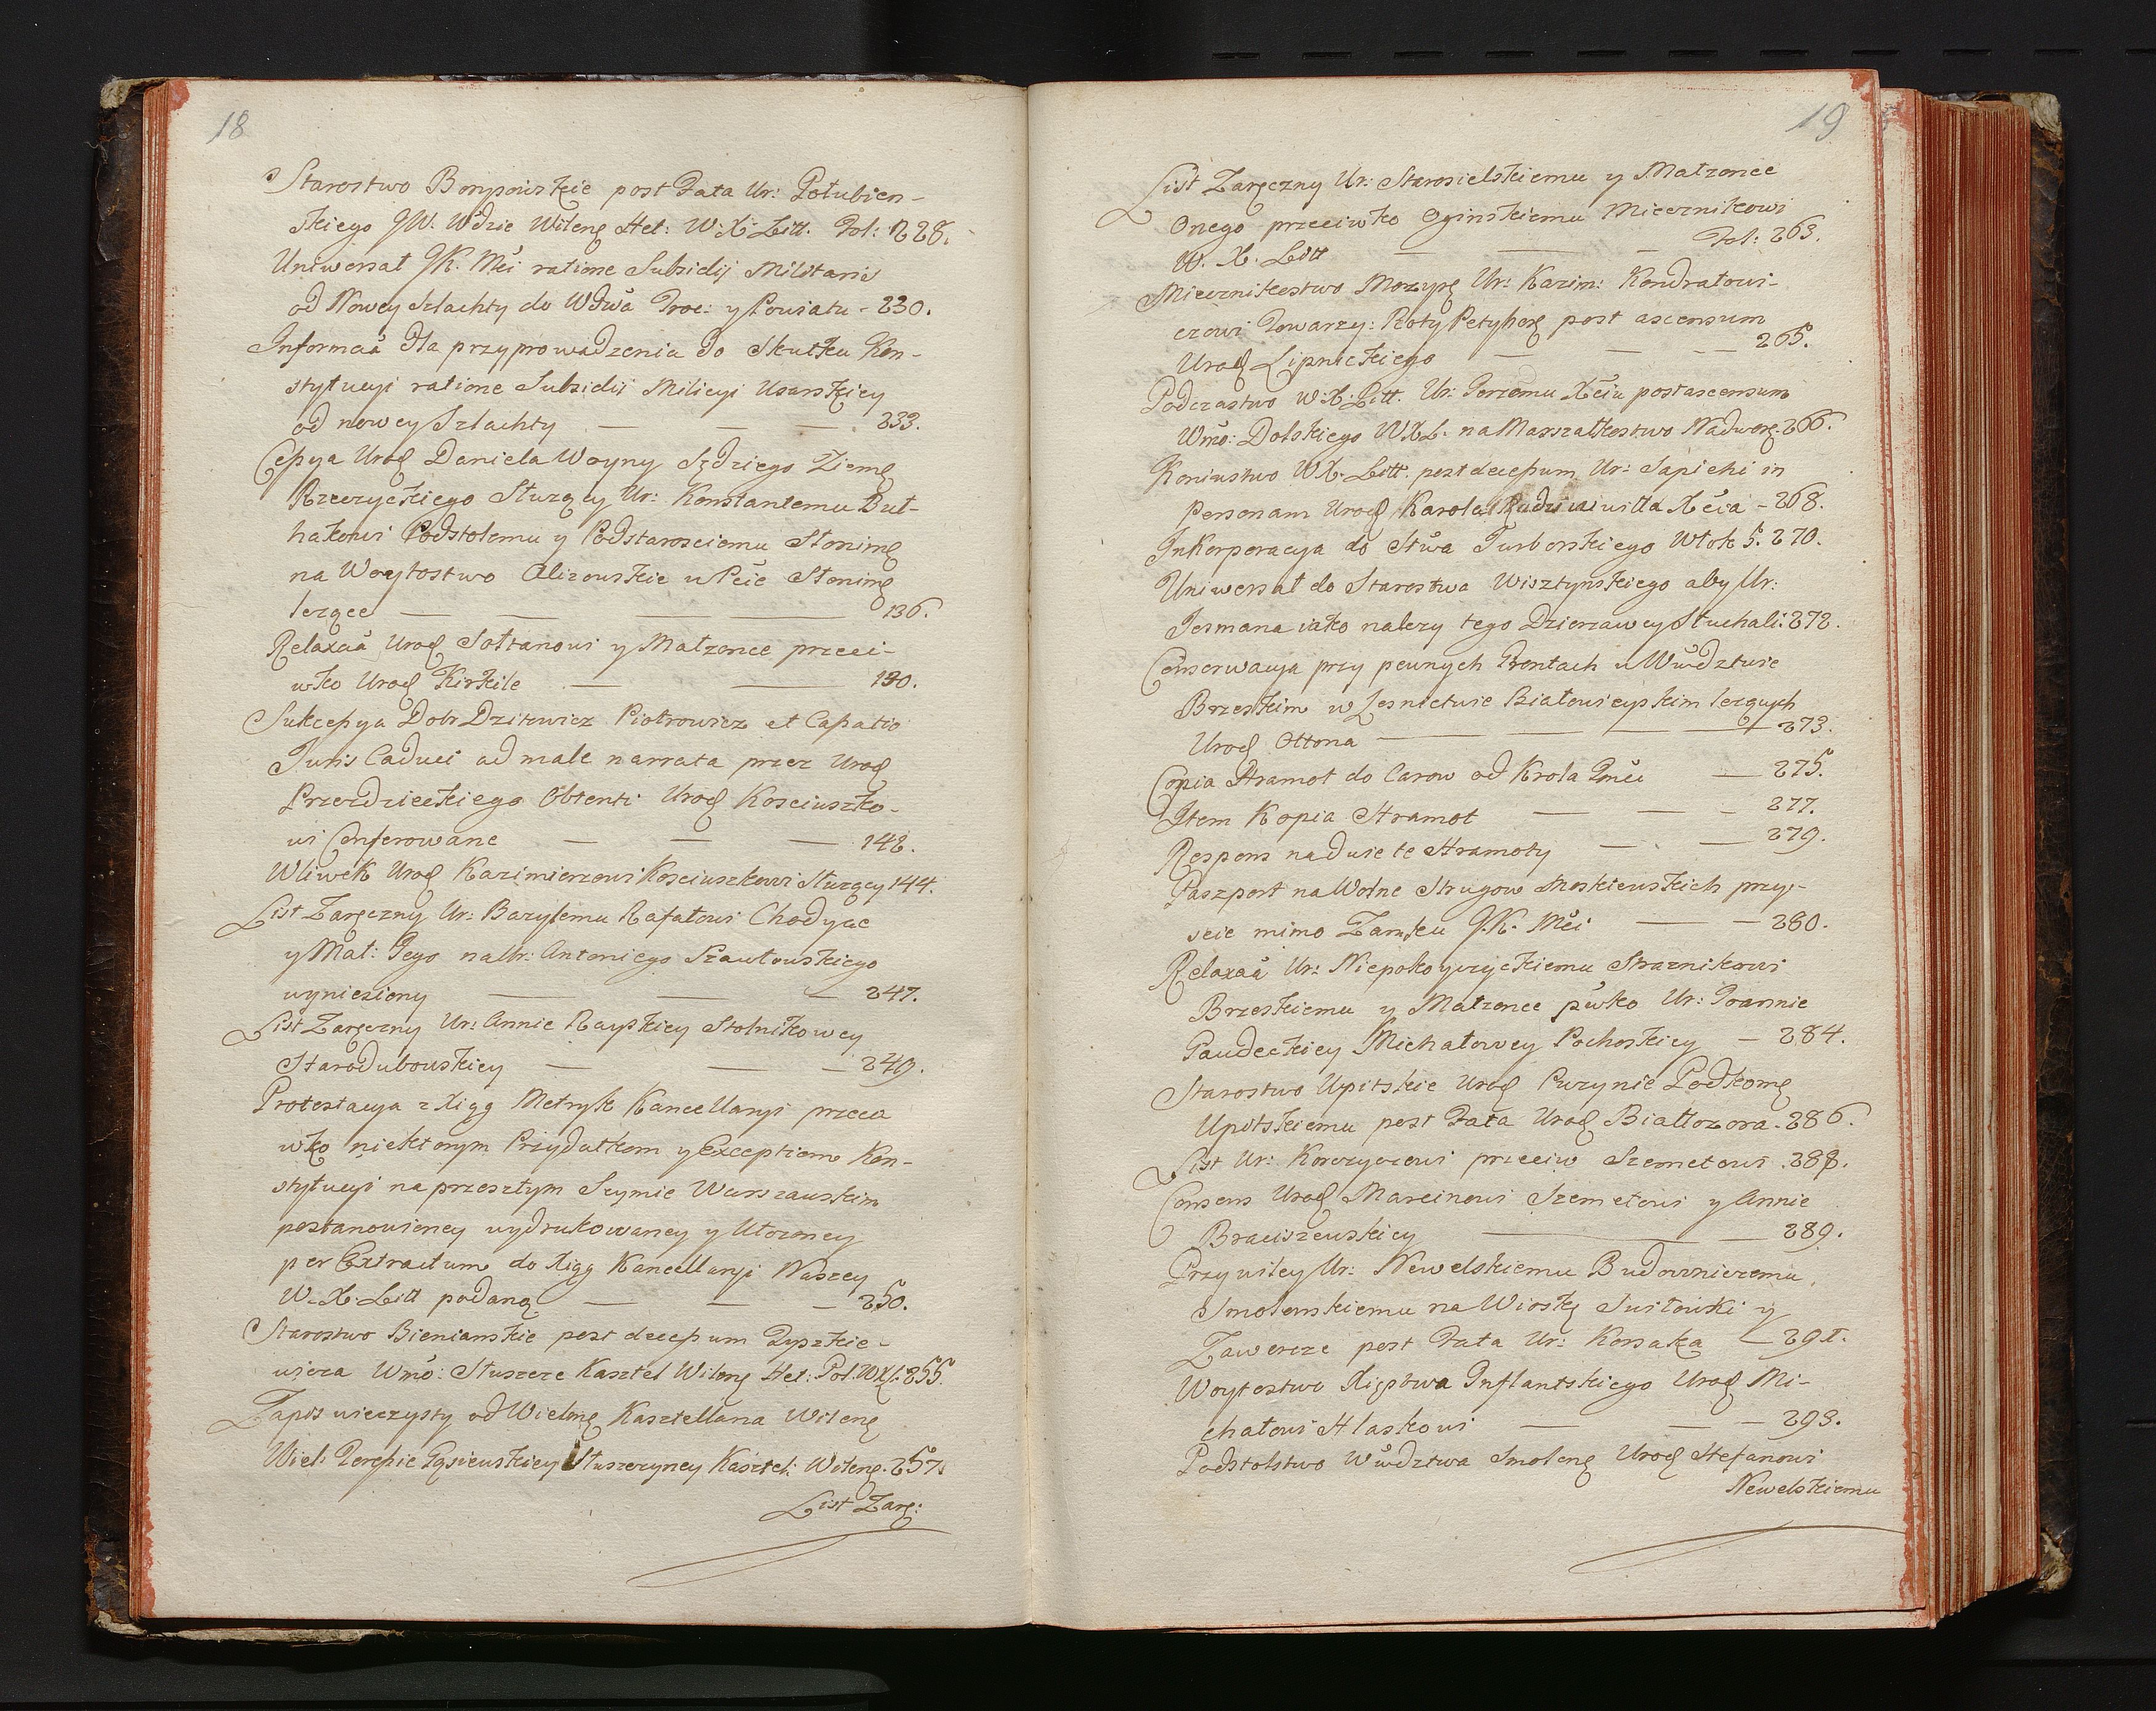 18
Starostwo Borysowskie post Fata Ur: Połubien-
skiego JW. Wdzie Wileng Het: W: X: Litt. Fol: 228.
Uniwersał JK. Mći ratione Subsidij Militaris
od Nowey Szlachty do Wdwa Troc: y Powiatu - 230.
Informaa dla przyprowadzenia do Skutku Kon-
stytucyi ratione Subsidii Milicyi Usarskiey
od nowey Szlachty — — — 233.
Cessya Urod Daniela Woyny Sędziego Ziemg
Rzeczyckiego Służący Ur: Konstantemu Buł-
hakowi Podstolemu y Podstarosciemu Słonimg
na Woytostwo Alizowskie w Pcie Słonimg
leżące — — — 136.
Relaxaa Urod Sołtanowi y Małżonce przeci-
wko Urod Kirkile — — 130.
Sukcessya Dobr Dzitowicz Piotrowicz et Capatio
Juris Caduci ad male narrata przez Urod
Przezdzieckiego Obtenti Urod Kosciuszko-
wi Conferowane — — — 142.
Wliwek Urod Kazimierzowi Kosciuszkowi Służący 144.
List Zaręczny Ur: Bazylemu Rafałowi Chodyce
y Mał: Jego na Ur: Antoniego Szawłowskiego
wyniesiony — — — 247.
List Zaręczny Ur: Annie Rayskiey Stolnikowey
Starodubowskiey — — — 249.
Protestacya z Xiąg Metryk Kancellaryi przeci
wko niektorym Przydatkom y Exceptiom Kon-
stytucyi na przeszłym Seymie Warszawskim
postanowioney wydrukowaney y Utożoney
per Extractum do Xiąg Kancellaryi Naszey
W. X. Litt podaną — — — 250.
Starostwo Bienianskie post decessum Tyszkie-
wicza Wmo: Słuszcze Kasztel Wileng Het: Pol: WXL. 255.
Zapis wieczysty od Wielmg Kasztellana Wileng
Wiel: Teressie Gąsiewskiey Słuszczyney Kasztel: Wileng. 257.
List Zarę:
19
List Zaręczny Ur: Starosielskiemu y Małżonce
Onego przeciwko Oginskiemu Miecznikowi
W. X. Litt — — — Fol: 263.
Miecznikostwo Mozyrg Ur: Kazim: Kondratowi-
czowi Towarzy: Roty Petyhorg post ascensum
Urod Lipnickiego — — — 265.
Podczastwo W: X: Litt. Ur: Jerzemu Xciu post ascensum
Wmo: Dolskiego WXL. na Marszałkostwo Nadworg. 266.
Koniustwo WX. Litt. post decessum Ur: Sapiehi in
Personam Urod Karola Radziwiłła Xcia - 268.
Inkorporacya do Stwa Jurborskiego Włok 5. 270.
Uniwersał do Starostwa Wisztynskiego aby Ur:
Jesmana iako należy tego Dzierzawcy Słuchali. 272.
Conserwacya przy pewnych Grontach w Wwdztwie
Brzeskim w Lesnictwie Białowieyskim leżących
Urod Ottona — — — 273.
Copia Hramot do Carow od Krola Jmći — 275.
Item Kopia Hramot — — — 277.
Respons na dwie te Hramoty — — 279.
Paszport na Wolne Strugow Moskiewskich przy-
scie mimo Zamku J.K. Mći — — 280.
Relaxaa Ur: Niepokoyczyckiemu Straznikowi
Brzeskiemu y Małżonce pwko Ur: Joannie
Paudeckiey Michałowey Pochoskiey — 284.
Starostwo Upitskie Urod Puzynie Podkomg
Upitskiemu post Fata Urod Białłozora. 286.
List Ur: Korczycowi przeciw Szemetowi. 288.
Consens Urod Marcinowi Szemetowi y Annie
Braciszewskiey — — 289.
Przywiley Ur: Newelskiemu Budowniczemu
Smolenskiemu na Wioskę Susłowki y
Zawercze post Fata Ur: Korsaka — 291.
Woytostwo Xięstwa Inflantskiego Urod Mi-
chałowi Hlaskowi — — — 293.
Podstolstwo Wwdztwa Smoleng Urod Stefanowi
Newelskiemu